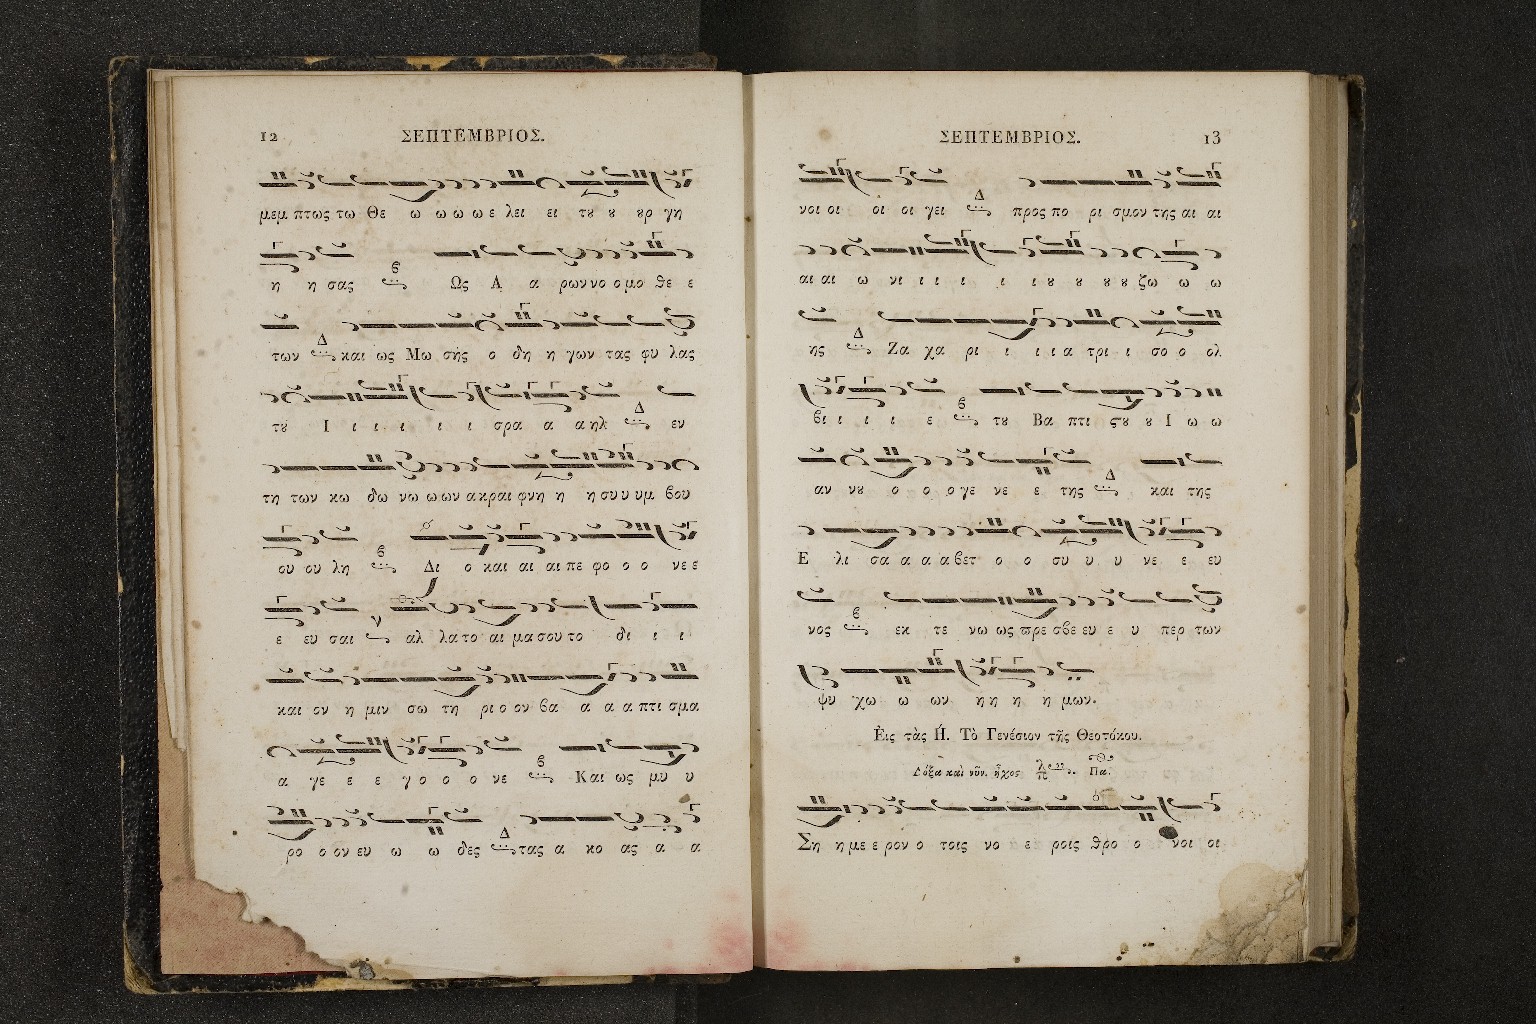 12 ΣΕΠΤΕΜΒΡΙΟΣ.
μεμ πτως τω Θε ω ω ω ω ε λει ει τȣ ȣ ȣρ γη
η η σας Ως Α α ρων νο ο μο θε ε
των και ως Μω σής ο δη η γων τας φυ λας
τȣ Ι ι ι ι ι ι σρα α α ηλ εν
τη των κω δω νω ω ων α κραι φνη η η συ υ υμ βου
ου ου λη Δι ο και αι αι πε φο ο ο νε ε
ε ευ σαι αλ λα το αι μα σου το δι ι ι
και ον η μιν σω τη ρι ο ον βα α α α πτι σμα
α γε ε ε γο ο ο νε Και ως μυ υ
ρο ο ον ευ ω ω δες τας α κο ας α α
ΣΕΠΤΕΜΒΡΙΟΣ. 13
νοι οι οι οι γει προς πο ρι σμον της αι αι
αι αι ω νι ι ι ι ι ι ȣ ȣ ȣ ȣ ζω ω ω
ης Ζα χα ρι ι ι ι α τρι ι σο ο ολ
βι ι ι ι ε τȣ Βα πτι ςȣ ȣ Ι ω ω
αν νȣ ο ο ο γε νε ε της και της
Ε λι σα α α α βετ ο ο συ υ υ νε ε ευ
νος εκ τε νω ως πρε σβε ευ ε υ περ των
ψυ χω ω ων η η η η μων.
Ἐις τὰς Ή. Τὸ Γενέσιον τῆς Θεοτόκου.
Δόξα καὶ νῦν. ἦχος Πα.
Ση η με ε ρον ο τοις νο ε ροις θρο ο νοι οι